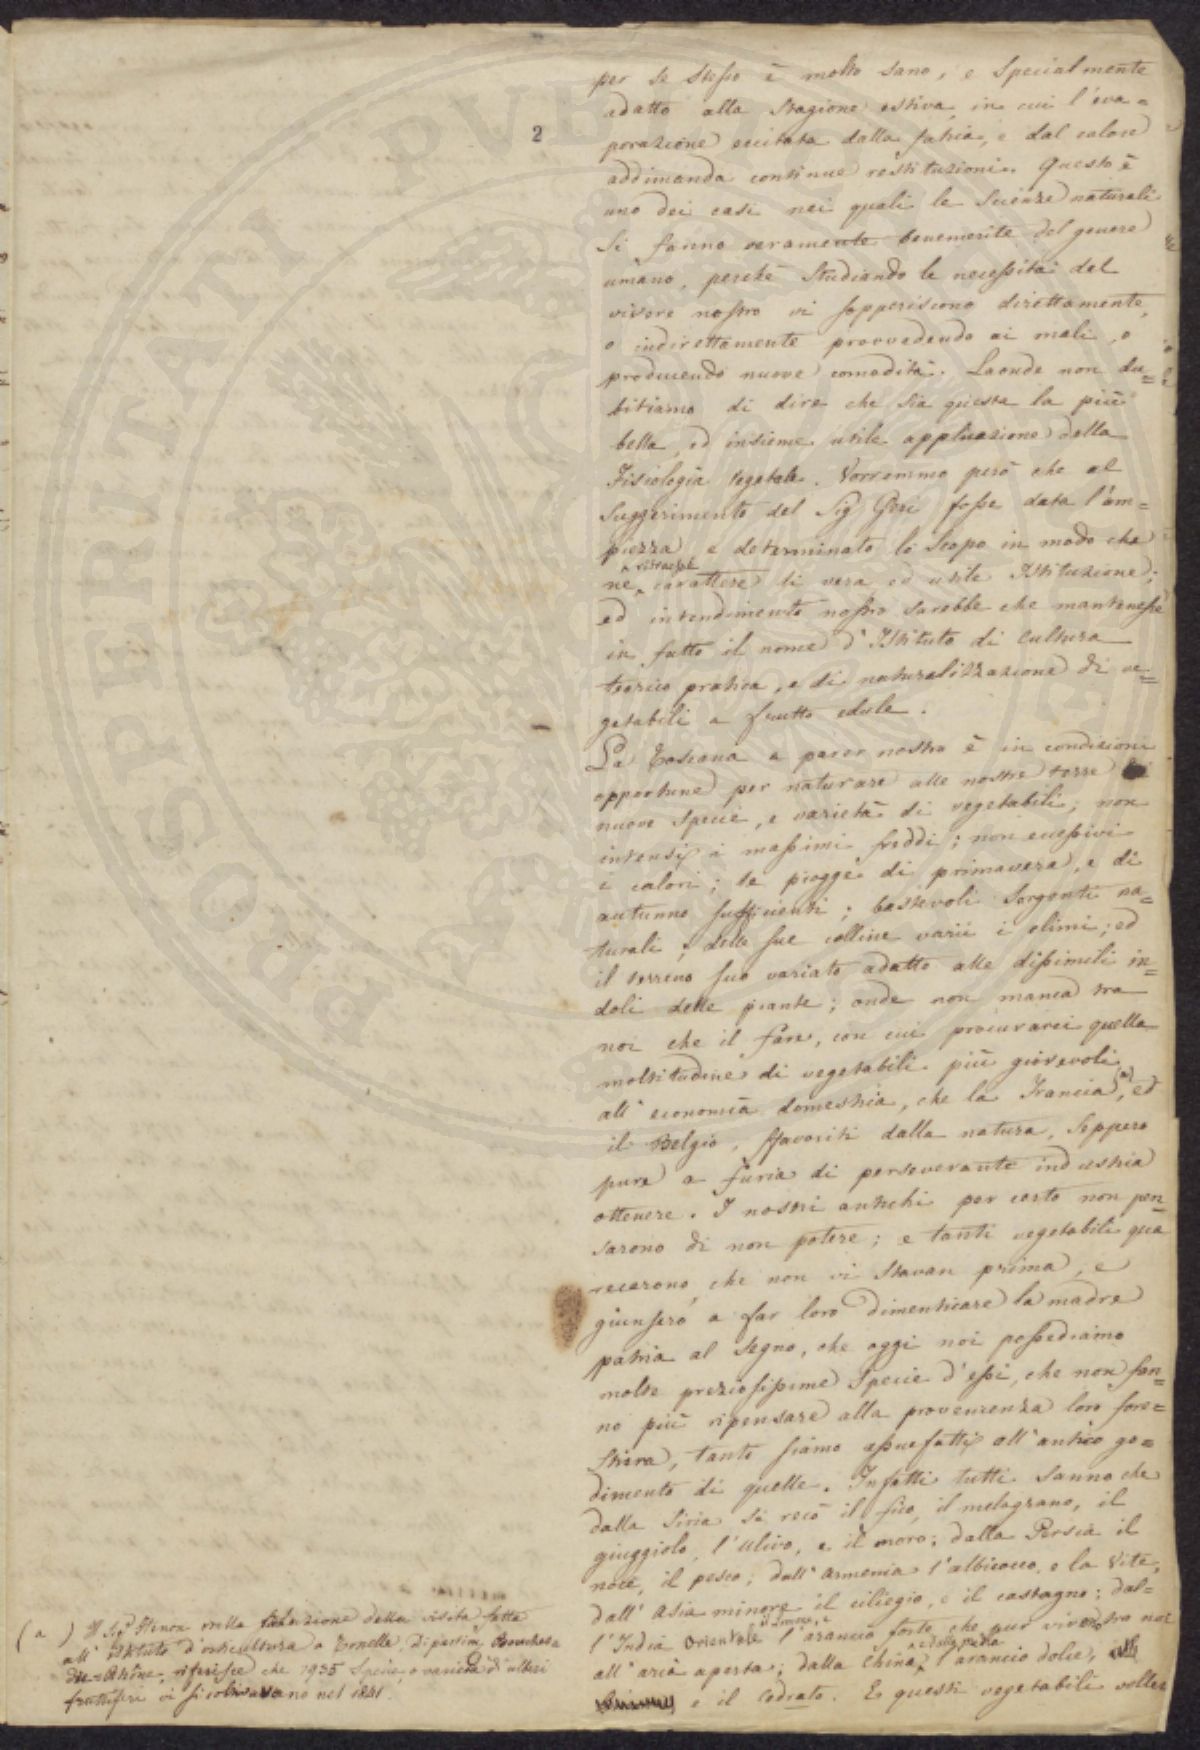 2
per se stesso è molto sano, e specialmente
adatto alla stagione estiva, in cui l'eva=
porazione eccitata dalla fatica, e dal calore
addimanda continue restituzioni. Questo è
uno dei casi nei quali le Scienze naturali
si fanno veramente benemerite del genere
umano, perchè studiando le necessità del
vivere nostro vi sopperiscono direttamente,
o indirettamente provvedendo ai mali, o
producendo nuove comodità. Laonde non du=
bitiamo di dire che sia questa la più
bella, ed insieme utile applicazione della
Fisiologia vegetale. Vorremmo però che al
suggerimento del Sig Gori fosse data l'am=
piezza, e determinato lo scopo in modo che
ne carattere di vera ed utile Istituzione;
ed intendimento nostro sarebbe che mantenesse
in fatto il nome d'Istituto di Cultura
teorico pratica, e di naturalizzazione di ve=
getabili a frutto edule.
La Toscana a parer nostro è in condizioni
opportune per naturare alle nostre terre
nuove specie, e varietà di vegetabili; non
intensi i massimi freddi; non eccessivi
i calori; le piogge di primavera, e di
autunno sufficienti; bastevoli sorgenti na=
turali; delle sue colline varii i climi; ed
il terreno suo variato adatto alle dissimili in=
doli delle piante; onde non manca tra
noi che il fare, con cui procurarci quella
moltitudine di vegetabili più giovevoli
all'economia domestica, che la Francia (a), ed
il Belgio, sfavoriti dalla natura, seppero
pure a furia di perseverante industria
ottenere. I nostri antichi per certo non pen=
sarono di non potere; e tanti vegetabili qua
recarono, che non vi stavan prima, e
giunsero a far loro dimenticare la madre
patria al segno, che oggi noi possediamo
molte preziosissime specie d'essi, che non fan=
no più ripensare alla provenienza loro fore=
stiera, tanto siamo assuefatti all'antico go=
dimento di quelle. Infatti tutti sanno che
dalla Siria si recò il fico, il melagrano, il
giuggiolo, l'ulivo, e il moro; dalla Persia il
noce, il pesco; dall'Armenia l'albicocco, e la vite,
dall'Asia minore il ciliegio, e il castagno; dal=
l'India Orientale il limone, e l'arancio forte, che pur vive tra noi
all'aria aperta; dalla China, l'arancio dolce,
e il Cedrato. E questi vegetabili volle
(a) Il Sig. nella relazione della visita fatta
all'Istituto d'orticultura a
riferisce che 1935 specie, o varietà di alberi
fruttiferi vi si coltivavano nel 1841.